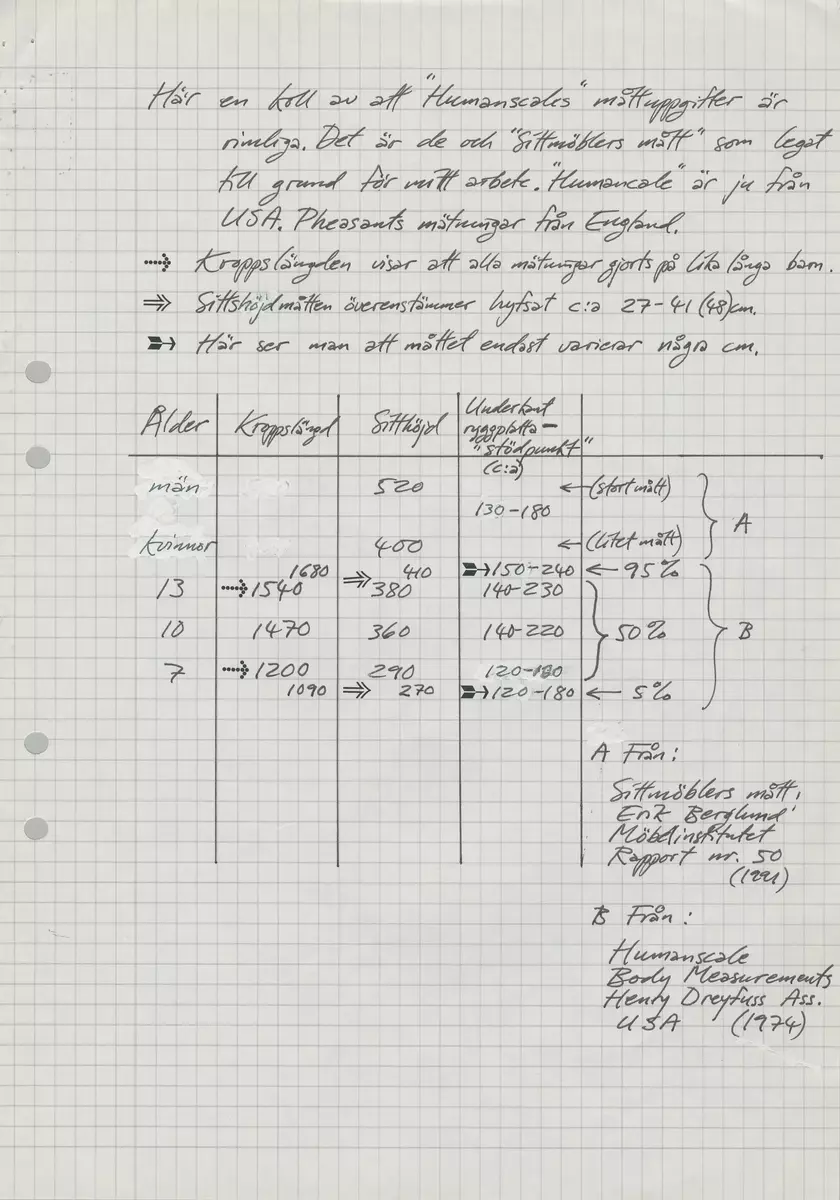 Här en koll av att "Humanscales" måttuppgifter är
rimliga. Det är de och "Sittmöblers mått" som legat
till grund för mitt arbete. "Humancale" är ju från
USA. Pheasants mätningar från England.
Kroppslängden visar att alla mätningar gjorts på lika långa barn.
⇛ Sittshöjdmåtten överenstämmer hyfsat c:a 27-41 (48)cm.
Här ser man att måttet endast varierar några cm.
Ålder Kroppslängd Sitthöjd Underkant
ryggplatta-
"stödpunkt"
(c:a)
män 520 ← (stort mått)
130-180 A
kvinnor 400 ← (litet mått)
1680 ⇛ 410 150-240 ← 95%
13 1540 380 140-230
10 1470 360 140-220 50% B
7 1200 290 120-180
1090 ⇛ 270 120-180 ← 5%
A Från:
Sittmöblers mått,
Erik Berglund
Möbelinstitutet
Rapport nr. 50
(1991)
B Från:
Humanscale
Body Measurements
Henry Dreyfuss Ass.
USA (1974)